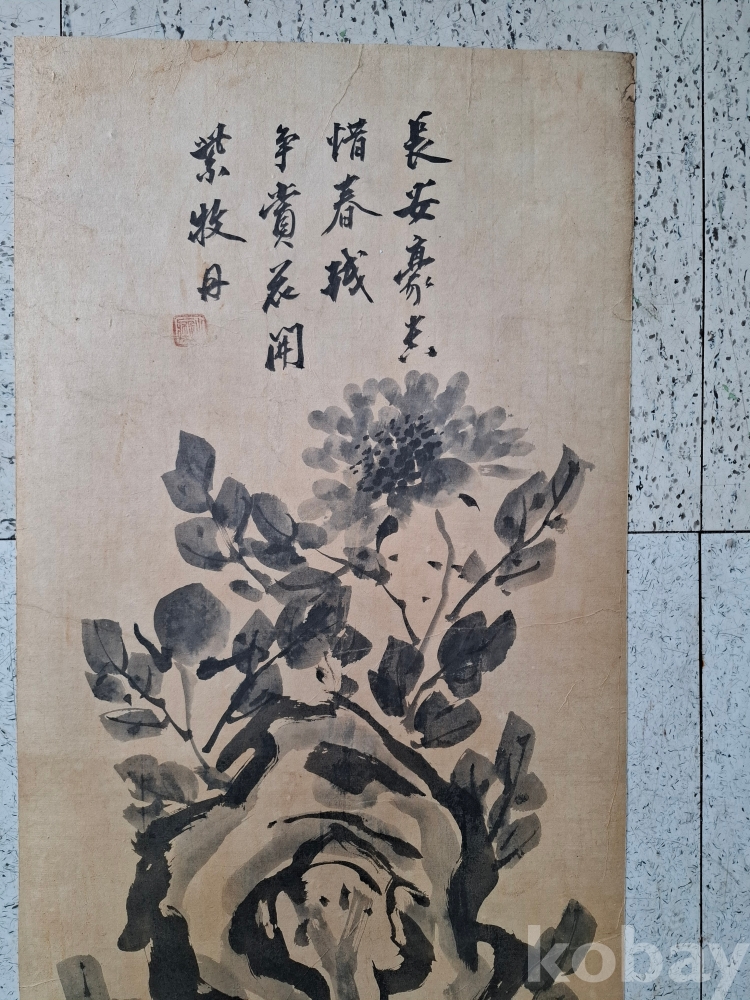 長安豪貴
惜春殘
爭賞花開
紫牧丹
kobay